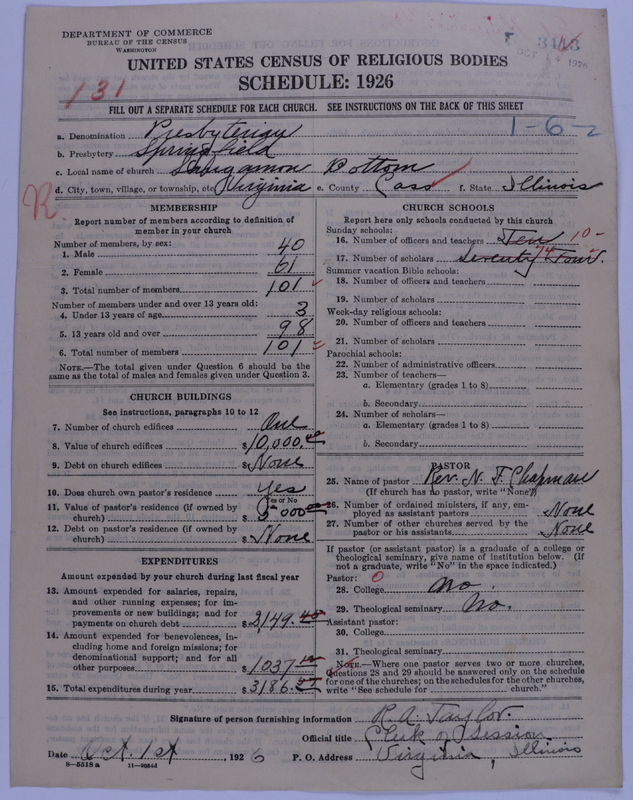 DEPARTMENT OF COMMERCE
BUREAU OF THE CENSUS
WASHINGTON
OCT 1926
UNITED STATES CENSUS OF RELIGIOUS BODIES
SCHEDULE: 1926
131
FILL OUT A SEPARATE SCHEDULE FOR EACH CHURCH. SEE INSTRUCTIONS ON THE BACK OF THIS SHEET
1-6-2
a. Denomination Presbyterian
b. Presbytery Springfield
c. Local name of church Sangamon Bottom
d. City, town, village, or township, etc. Virginia e. County Cass f. State Illinois
R
MEMBERSHIP
Report number of members according to definition of
member in your church
Number of members, by sex:
1. Male 40
2. Female 61
3. Total number of members 101
Number of members under and over 13 years old:
4. Under 13 years of age 3
5. 13 years old and over 98
6. Total number of members 101
NOTE.—The total given under Question 6 should be
same as the total of males and females given under Question 3.
CHURCH BUILDINGS
See instructions, paragraphs 10 to 12
7. Number of church edifices One
8. Value of church edifices $10,000.00
9. Debt on church edifices $None
10. Does church own pastor's residence Yes
Yes or No
11. Value of pastor's residence (if owned by
church) $5000
12. Debt on pastor's residence (if owned by
church) $None
EXPENDITURES
Amount expended by your church during last fiscal year
13. Amount expended for salaries, repairs,
and other running expenses; for im-
provements or new buildings; and for
payments on church debt $2,149.
14. Amount expended for benevolences, in-
cluding home and foreign missions; for
denominational support; and for all
other purposes $1037
15. Total expenditures during year $3186.
CHURCH SCHOOLS
Report here only schools conducted by this church
Sunday schools:
16. Number of officers and teachers Ten 10-
17. Number of scholars Seventy Four. 74
Summer vacation Bible schools:
18. Number of officers and teachers
19. Number of scholars
Week-day religious schools:
20. Number of officers and teachers
21. Number of scholars
Parochial schools:
22. Number of administrative officers
23. Number of teachers—
a. Elementary (grades 1 to 8)
b. Secondary
24. Number of scholars—
a. Elementary (grades 1 to 8)
b. Secondary
PASTOR
25. Name of pastor Rev. N. F. Chapman
(If church has no pastor, write "None")
26. Number of ordained ministers, if any, em-
ployed as assistant pastors None
27. Number of other churches served by the
pastor or his assistants None
If pastor (or assistant pastor) is a graduate of a college or
theological seminary, give name of institution below. (If
not a graduate, write "No" in the space indicated.)
Pastor: 0
28. College No.
29. Theological seminary No.
Assistant pastor:
30. College
31. Theological seminary
NOTE.—Where one pastor serves two or more churches,
Questions 28 and 29 should be answered only on the schedule
for one of the churches; on the schedules for the other churches,
write "See schedule for church."
Signature of person furnishing information R. A. Taylor.
Official title Clerk of Session
Date Oct. 1st 1926 P. O. Address Virginia, Illinois
8-5518 a